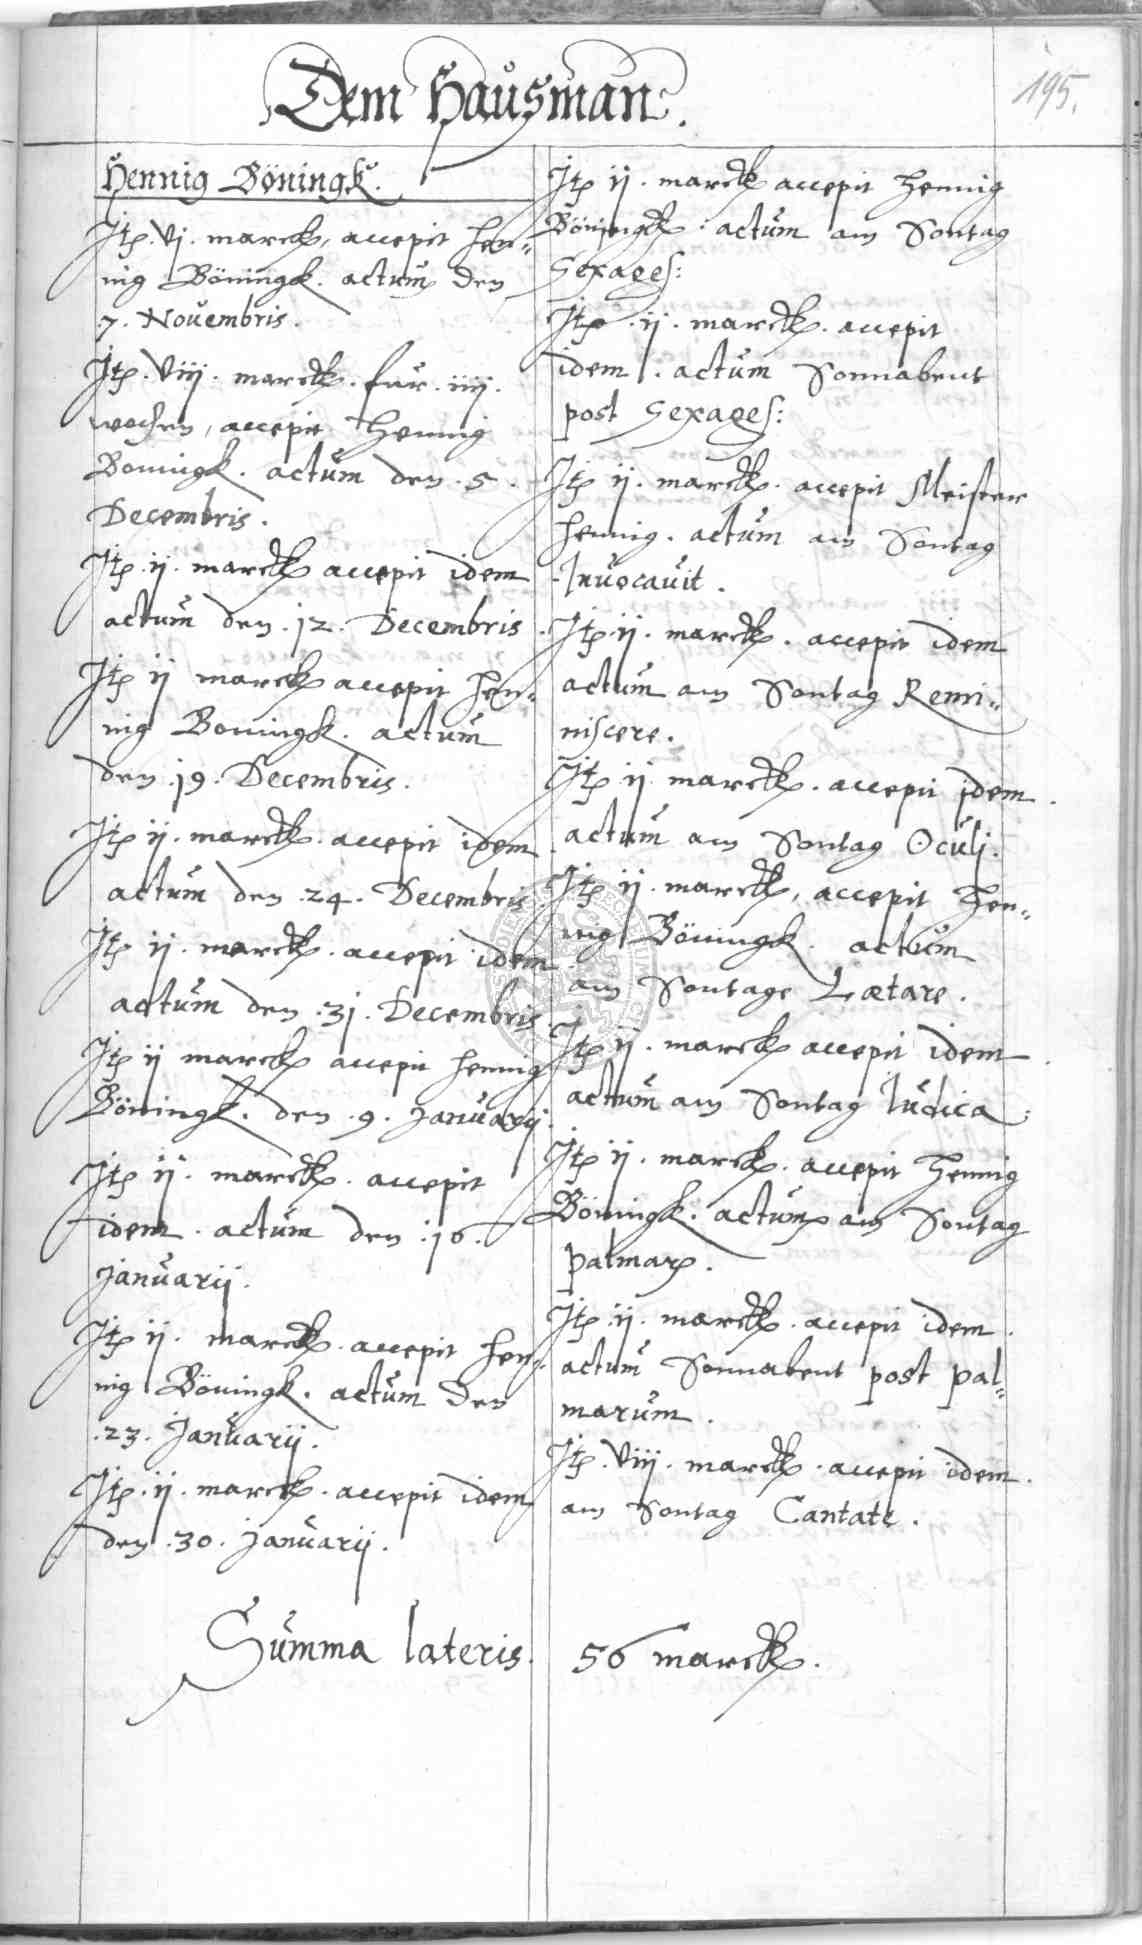 Dem Hausman.
195.
Hennig Böningk.
Itp. vj. marck, accepit Hen-
nig Böningk. actum den
.7. Novembris.
Itp. viij. marck. fur .iiij.
wochen, accepit Hennig
Boningk. actum den .5.
Decembris.
Itp .ij. marck accepit idem
actum den .12. Decembris.
Itp ij marck accepit Hen-
nig Boningk. actum
den .19. Decembris.
Itp ij. marck. accepit idem
actum den .24. Decembris
Itp ij. marck. accepit idem
actum den .31. Decembris
Itp ij marck accepit Hennig
Böningk. den .9. Januarij.
Itp ij. marck. accepit
idem. actum den .16.
Januarij.
Itp ij. marck. accepit Hen-
nig Böningk. actum den
.23. Januarij.
Itp .ij. marck. accepit idem
den .30. Januarij.
Itp ij. marck accepit Hennig
Böningk. actum am Sontag
Sexages:
Itp .ij. marck. accepit
idem. actum Sonnabent
post Sexages:
Itp ij. marck. accepit Meister
Hennig. actum am Sontag
Invocavit.
Itp .ij. marck. accepit idem
actum am Sontag Remi-
niscere.
Itp ij marck. accepit idem.
actum am Sontag Oculj.
Itp ij. marck, accepit Hen-
nig Böningk. actum
am Sontage Lætare.
Itp ij. marck accepit idem.
actum am Sontag Iudica.
Itp ij. marck. accepit Hennig
Böningk. actum am Sontag
Palmarp.
Itp .ij. marck. accepit idem.
actum Sonnabent post Pal-
marum.
Itp .viij. marck. accepit idem.
am Sontag Cantate.
Summa lateris. 56 marck.